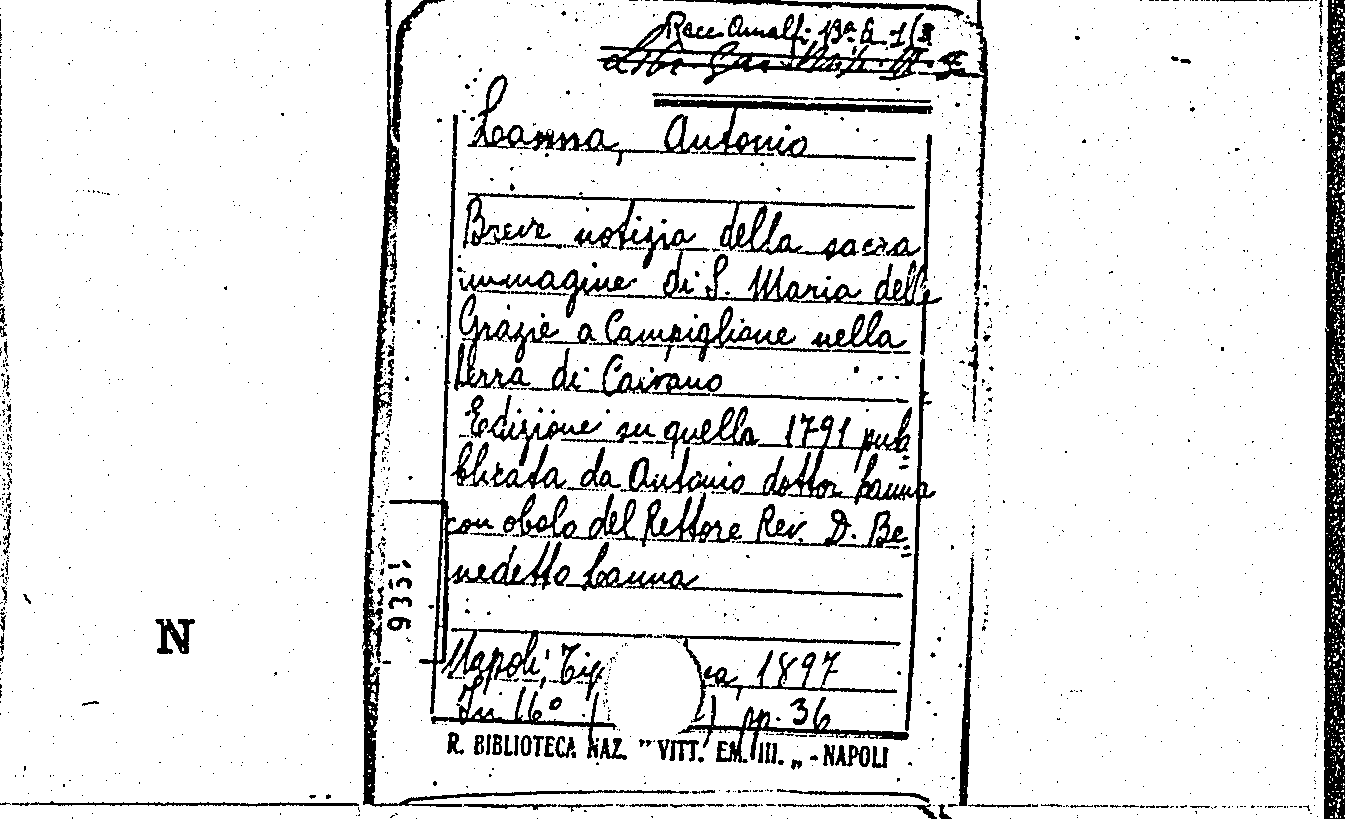 Racc. Amalfi, 13ª. B 1(3
Lanna, Antonio
Breve notizia della sacra
immagine di S. Maria delle
Grazie a Campiglione nella
terra di Cairano
Edizione su quella 1791 pub=
blicata da Antonio dottor Lanna
con obolo del Rettore Rev. D. Be=
nedetto Lanna
9331
N
Napoli, Tip ca, 1897
In 16° ( ) pp. 36
R. BIBLIOTECA NAZ. "VITT. EM. III. „ - NAPOLI